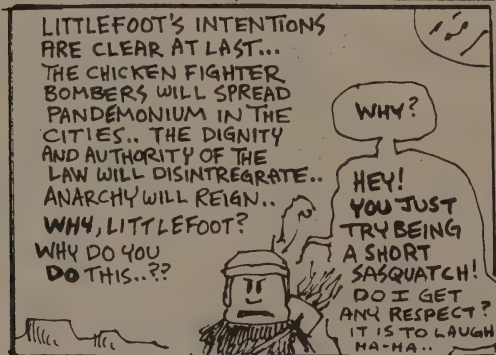 LITTLEFOOT'S INTENTIONS
ARE CLEAR AT LAST...
THE CHICKEN FIGHTER
BOMBERS WILL SPREAD
PANDEMONIUM IN THE
CITIES.. THE DIGNITY
AND AUTHORITY OF THE
LAW WILL DISINTREGRATE..
ANARCHY WILL REIGN..
WHY, LITTLEFOOT?
WHY DO YOU
DO THIS..??
WHY?
HEY!
YOU JUST
TRY BEING
A SHORT
SASQUATCH!
DO I GET
ANY RESPECT?
IT IS TO LAUGH
HA-HA..